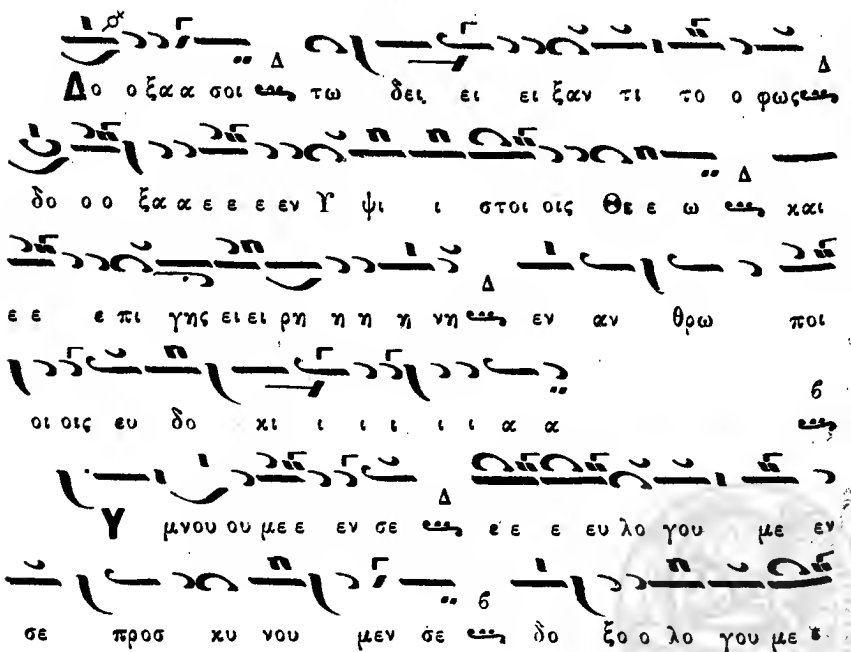 Δο ο ξα α σοι τω δει ει ει ξαν τι το ο φως
δο ο ο ξα α ε ε ε εν Υ ψι ι στοι οις Θε ε ω και
ε ε ε πι γης ει ει ρη η η η νη εν αν θρω ποι
οι οις ευ δο κι ι ι ι ι ι α α
Υ μνου ου με ε εν σε ε ε ε ευ λο γου με εν
σε προσ κυ νου μεν σε δο ξο ο λο γου με ε